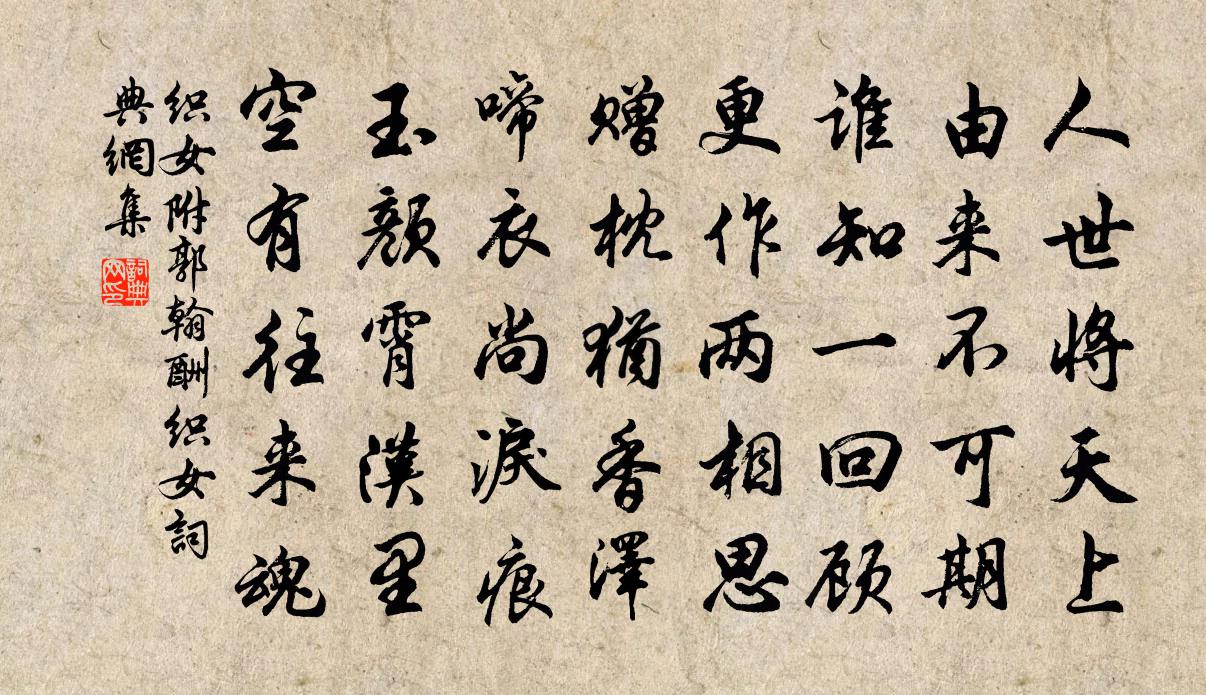 人世将天上
由来不可期
谁知一回顾
更作两相思
赠枕犹香泽
啼衣尚淚痕
玉颜霄漢里
空有往来魂
织女附郭翰酬织女詞
典網集
詞典网印